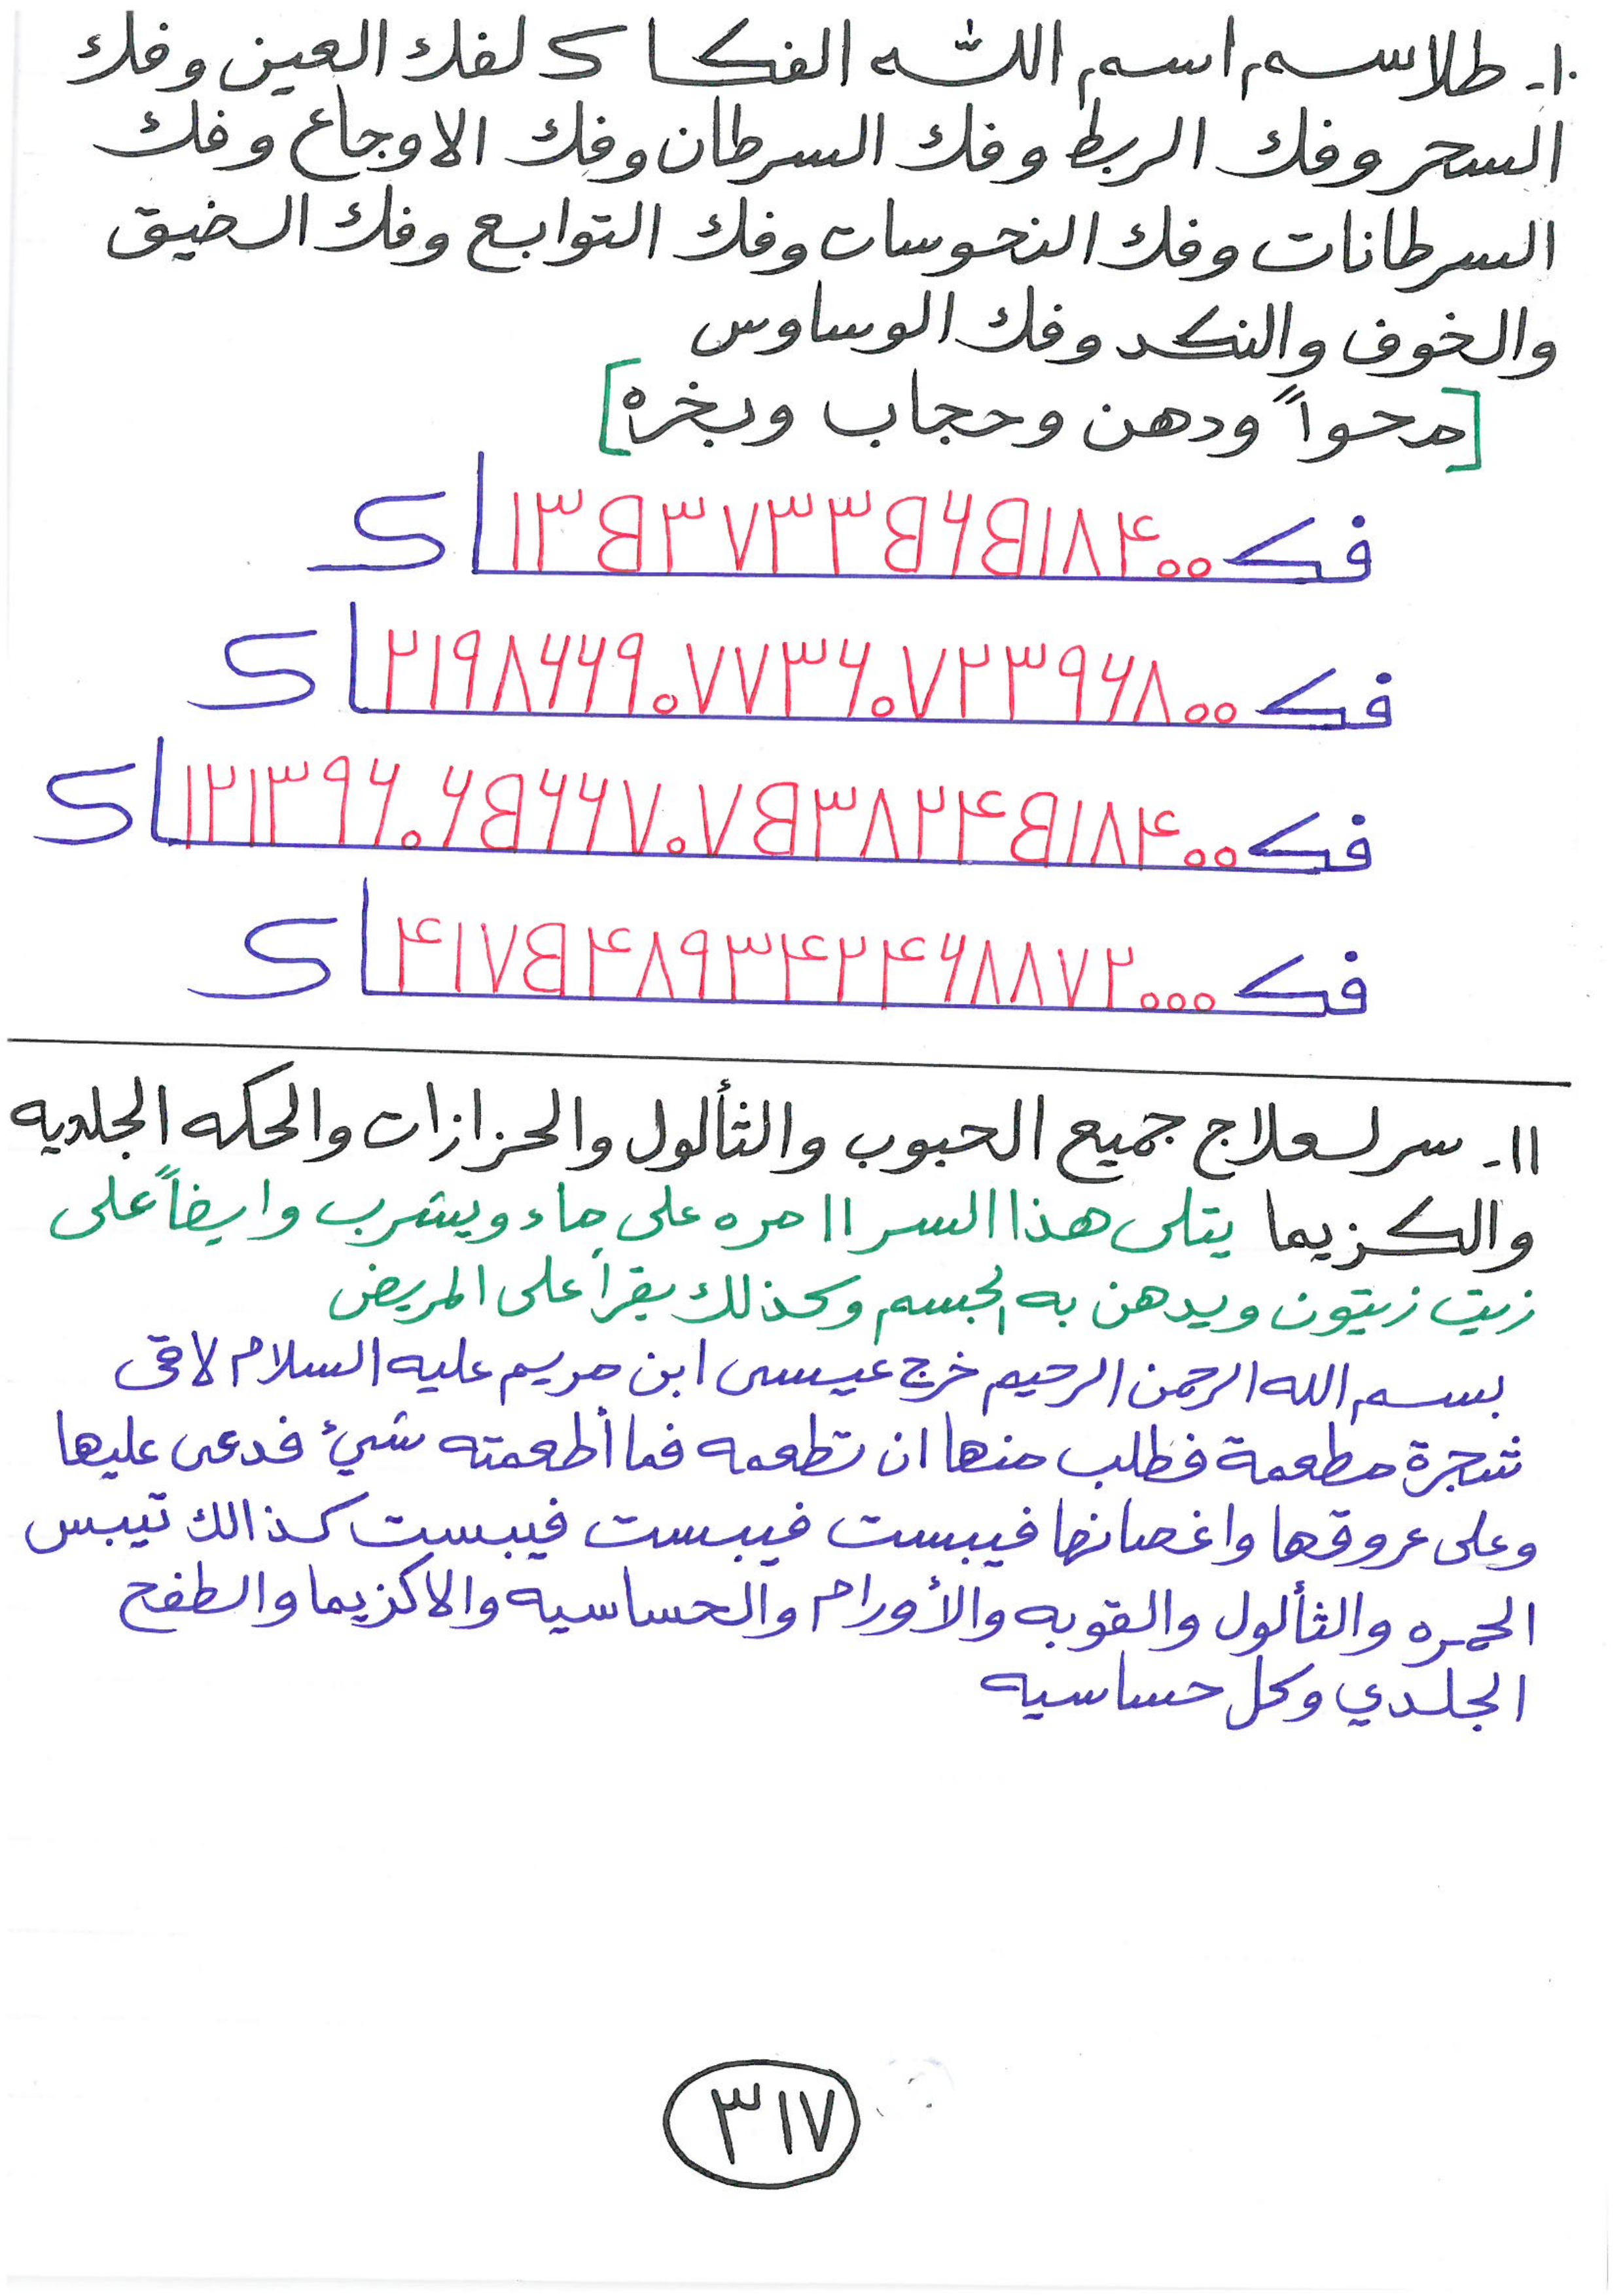 ١٠- طلاسم اسم الله الفكاك لفك العين وفك
السحر وفك الربط وفك السرطان وفك الاوجاع وفك
السرطانات وفك النحوسات وفك التوابع وفك الضيق
والخوف والنكد وفك الوساوس
[محواً ودهن وحجاب وبخره]
فك
اك
فك
اك
فك
اك
فك
اك
١١- سر لعلاج جميع الحبوب والثألول والحزازات والحكه الجلديه
والكزيما يتلى هذا السر ١١ مره على ماء ويشرب وايضاً على
زيت زيتون ويدهن به الجسم وكذلك يقرأ على المريض
بسم الله الرحمن الرحيم خرج عيسى ابن مريم عليه السلام لاقى
شجرة مطعمة فطلب منها ان تطعمه فما أطعمته شيئ فدعى عليها
وعلى عروقها واغصانها فيبست فيبست فيبست كذالك تيبس
الحمره والثألول والقوبه والأورام والحساسيه والاكزيما والطفح
الجلدي وكل حساسيه
٣١٧